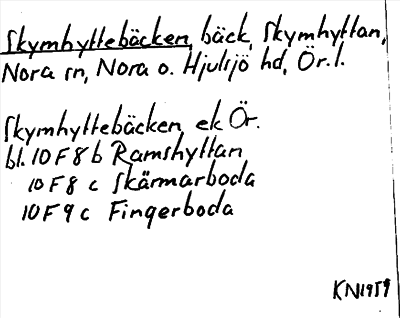 Skymhyttebäcken, bäck, Skymhyttan,
Nora sn, Nora o. Hjulsjö hd, Ör. l.
Skymhyttebäcken ek Ör.
bl. 10 F 8 b Ramshyttan
10 F 8 c Skärmarboda
10 F 9 c Fingerboda
KN1959